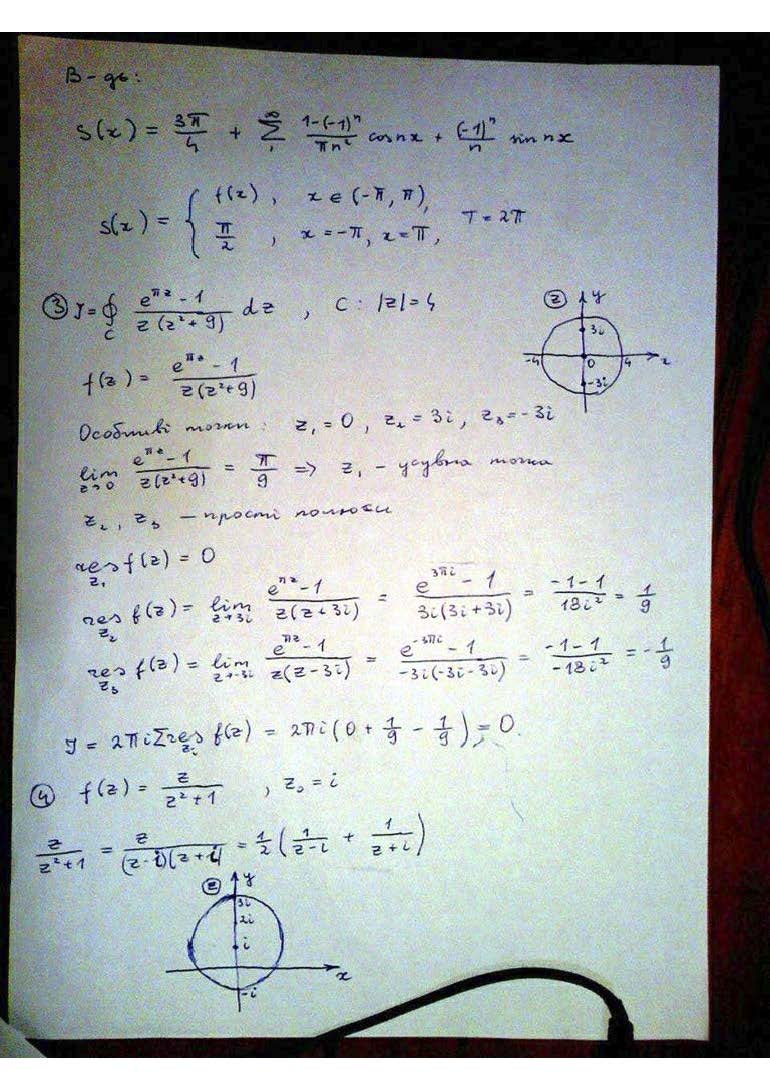 В-дь:
S(x) = 3π/4 + ∑₁^∞ (1-(-1)ⁿ)/(πn²) cos nx + (-1)ⁿ/n sin nx
S(x) = { f(x), x ∈ (-π, π),
π/2, x = -π, x = π, T = 2π
③ J = ∮_C (e^{πz} - 1)/(z(z²+9)) dz , C: |z| = 4
f(z) = (e^{πz} - 1)/(z(z²+9))
z y 3i -4 0 4 x -3i
Особливі точки: z₁ = 0, z₂ = 3i, z₃ = -3i
lim_{z→0} (e^{πz} - 1)/(z(z²+9)) = π/9 => z₁ - усувна точка
z₂, z₃ - прості полюси
res_{z₁} f(z) = 0
res_{z₂} f(z) = lim_{z→3i} (e^{πz} - 1)/(z(z+3i)) = (e^{3πi} - 1)/(3i(3i+3i)) = (-1-1)/(18i²) = 1/9
res_{z₃} f(z) = lim_{z→-3i} (e^{πz} - 1)/(z(z-3i)) = (e^{-3πi} - 1)/(-3i(-3i-3i)) = (-1-1)/(-18i²) = -1/9
J = 2πi ∑ res_{zᵢ} f(z) = 2πi (0 + 1/9 - 1/9) = 0.
④ f(z) = z/(z²+1) , z₀ = i
z/(z²+1) = z/((z-i)(z+i)) = 1/2 (1/(z-i) + 1/(z+i))
z y
3i
2i
i
x
-i